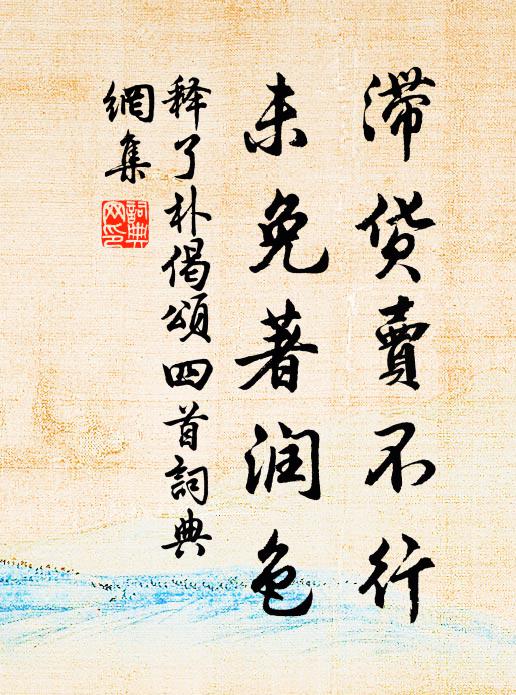 滞货賣不行
未免著润色
释了朴偈頌四首詞典
網集
詞典
网印